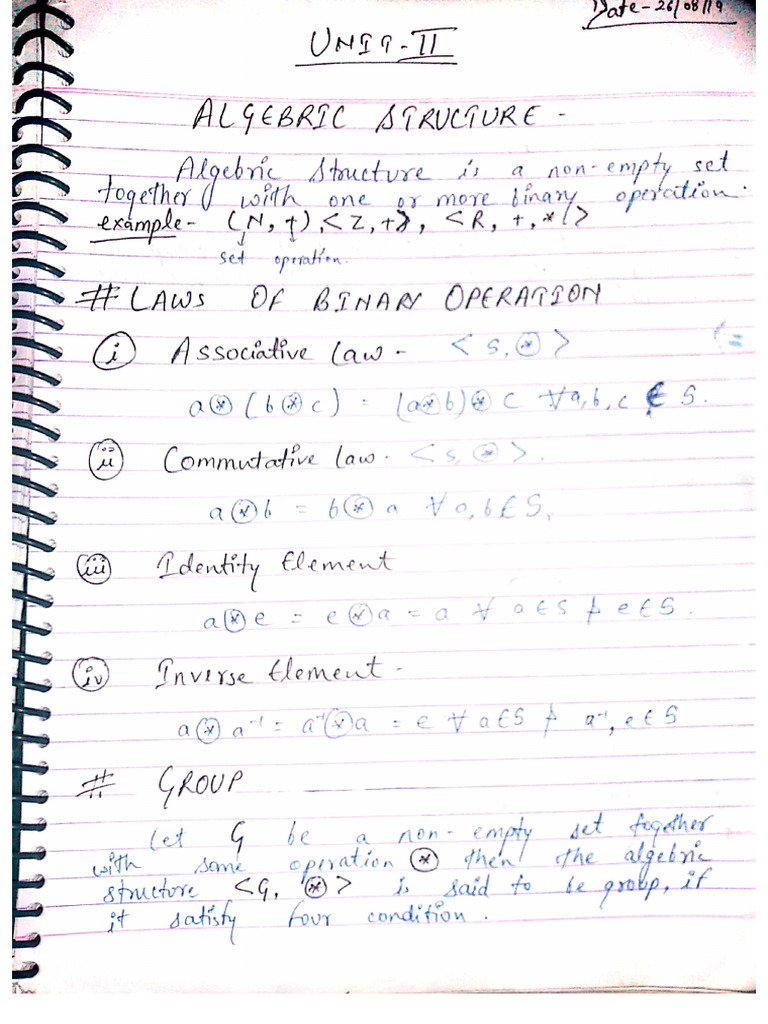 Date-26/08/19
UNIT-II
ALGEBRIC STRUCTURE -
Algebric Structure is a non-empty set
together with one or more binary operation.
example- (N, +), <Z, +>, <R, +, *>
set operation.
# LAWS OF BINARY OPERATION
(i) Associative law - <S, ⊛>
a ⊛ (b ⊛ c) = (a ⊛ b) ⊛ c ∀ a, b, c ∈ S.
(ii) Commutative law - <S, ⊛>.
a ⊛ b = b ⊛ a ∀ a, b ∈ S,
(iii) Identity Element
a ⊛ e = e ⊛ a = a ∀ a ∈ S & e ∈ S.
(iv) Inverse Element -
a ⊛ a⁻¹ = a⁻¹ ⊛ a = e ∀ a ∈ S & a⁻¹, e ∈ S
# GROUP
Let G be a non-empty set together
with some operation ⊛ then the algebric
structure <G, ⊛> is said to be group, if
it satisfy four condition.